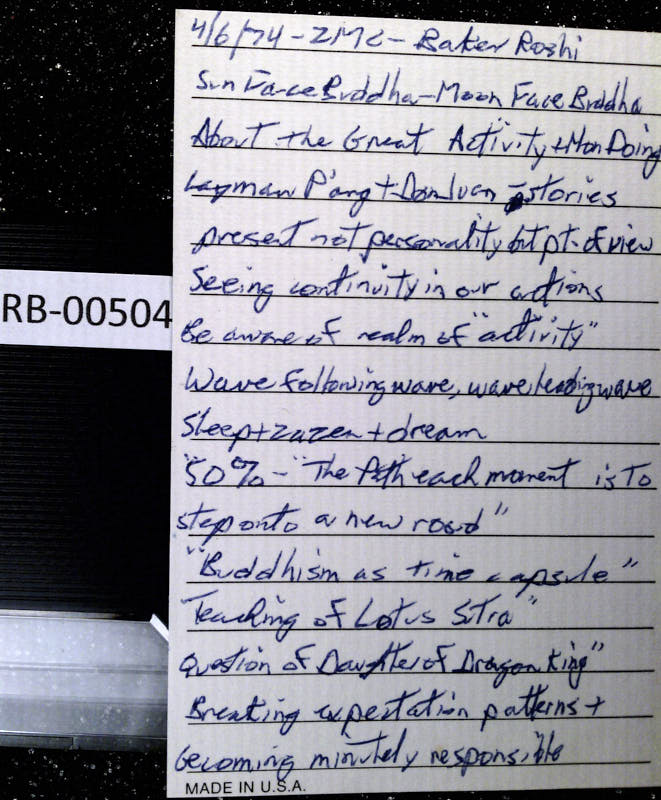 4/6/74 - ZMC - Baker Roshi
Sun Face Buddha - Moon Face Buddha
About the Great Activity + Non Doing
Layman P'ang + Don Juan stories
present not personality but pt. of view
Seeing continuity in our actions
RB-00504
Be aware of realm of "activity"
Wave following wave, wave leading wave
Sleep + zazen + dream
"50% - "The Path each moment is to
step onto a new road"
"Buddhism as time capsule"
"Teaching of Lotus Sutra"
Question of Daughter of Dragon King"
Breaking expectation patterns +
becoming minutely responsible
MADE IN U.S.A.